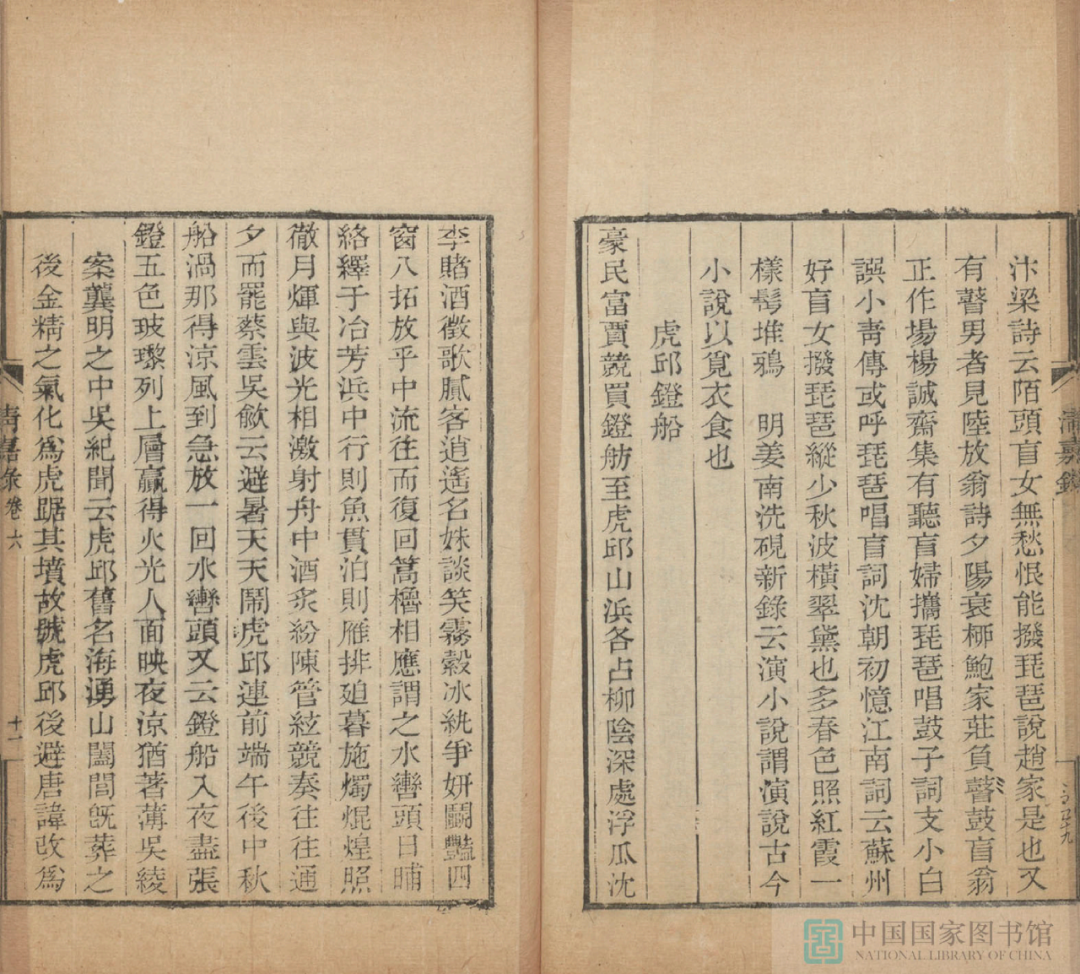 汴梁詩云陌頭盲女無愁恨能撥琵琶說趙家是也又
有瞽男者見陸放翁詩夕陽衰栁鮑家莊負瞽鼓盲翁
正作場楊誠齋集有聽盲婦攜琵琶唱鼓子詞支小白
誤小靑傳或呼琵琶唱盲詞沈朝初憶江南詞云蘇州
好盲女撥琵琶縱少秋波橫翠黛也多春色照紅霞一
樣髩堆鴉　明姜南洗硯新錄云演小說謂演說古今
小說以覓衣食也
虎邱鐙船
豪民富賈競買鐙舫至虎邱山浜各占柳陰深處浮瓜沈
李賭酒徵歌膩客逍遙名姝談笑霧縠冰紈爭妍鬭豔四
窗八拓放乎中流往而復回篙櫓相應謂之水轡頭日晡
絡繹于冶芳浜中行則魚貫泊則雁排廹暮施燭焜煌照
徹月煇與波光相激射舟中酒炙紛陳管絃競奏往往通
夕而罷蔡雲吳歈云避暑天天鬧虎邱連前端午後中秋
船渦那得涼風到急放一回水轡頭又云鐙船入夜盡張
鐙五色玻瓈列上層贏得火光人面映夜涼猶著薄吳綾
案龔明之中吳紀聞云虎邱舊名海湧山闔閭既葬之
後金精之氣化爲虎踞其墳故號虎邱後避唐諱改爲
清嘉錄
卷六
十一
中国国家图书馆
NATIONAL LIBRARY OF CHINA